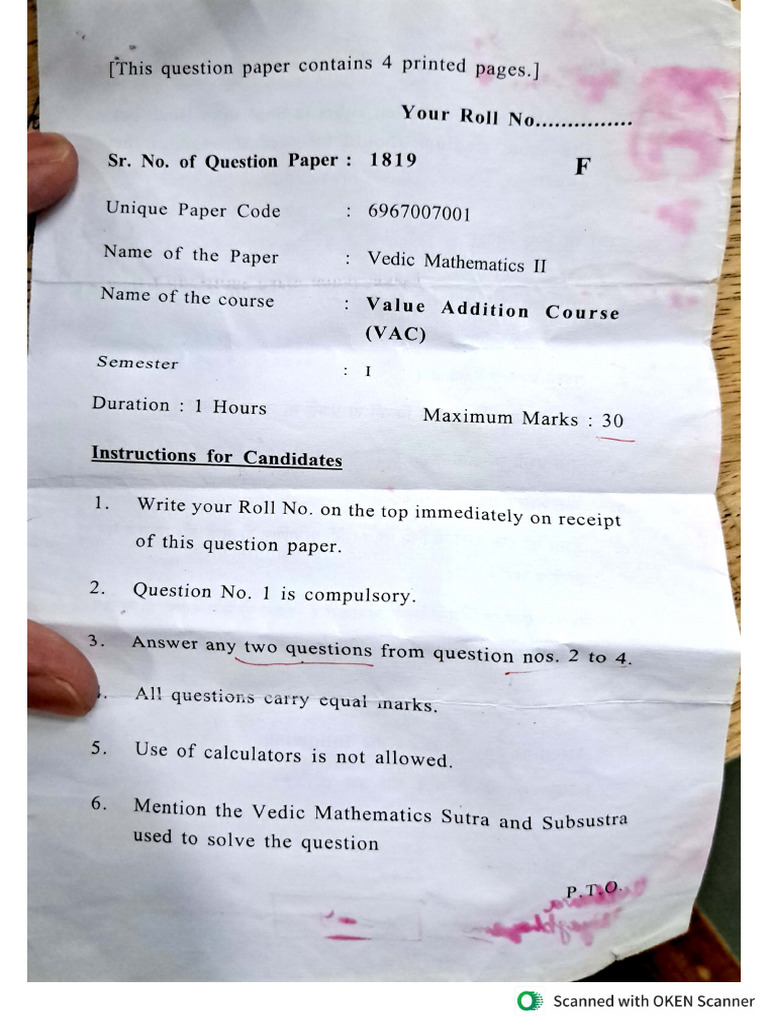 [This question paper contains 4 printed pages.]
Your Roll No...............
Sr. No. of Question Paper : 1819 F
Unique Paper Code : 6967007001
Name of the Paper : Vedic Mathematics II
Name of the course : Value Addition Course
(VAC)
Semester : I
Duration : 1 Hours Maximum Marks : 30
Instructions for Candidates
1. Write your Roll No. on the top immediately on receipt
of this question paper.
2. Question No. 1 is compulsory.
3. Answer any two questions from question nos. 2 to 4.
. All questions carry equal marks.
5. Use of calculators is not allowed.
6. Mention the Vedic Mathematics Sutra and Subsustra
used to solve the question
P.T.O.
Scanned with OKEN Scanner